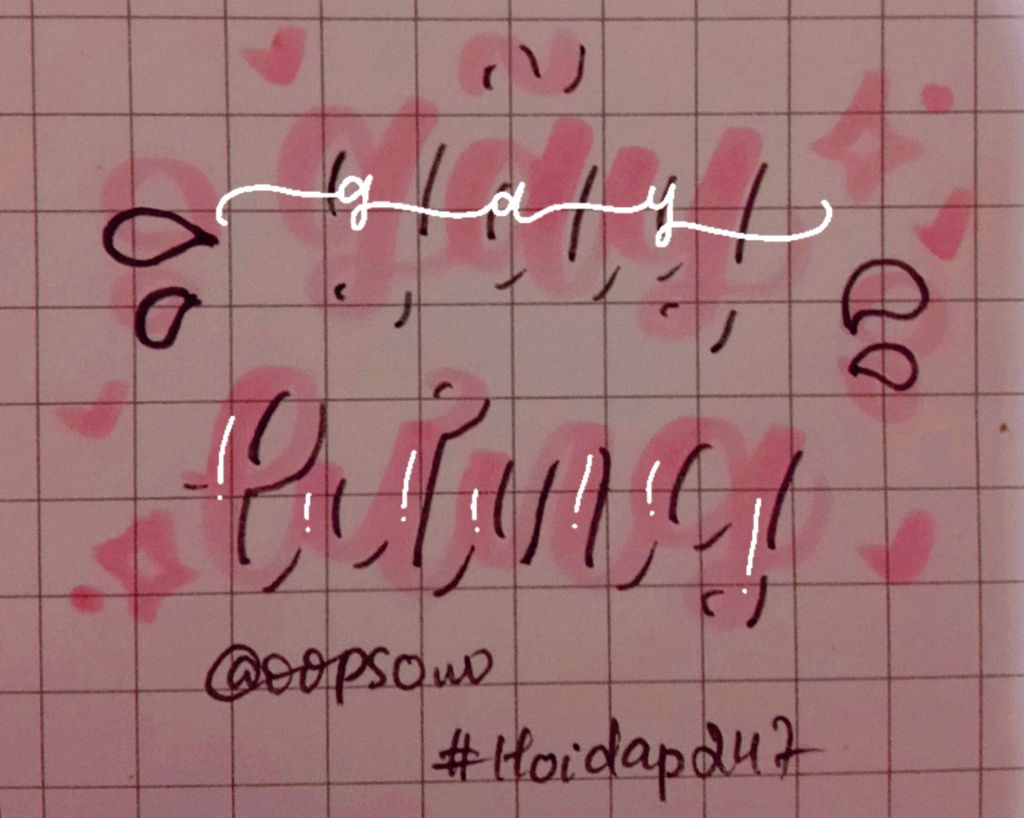 gãy
g a y
lưng
@oopsowo
#Hoidap247